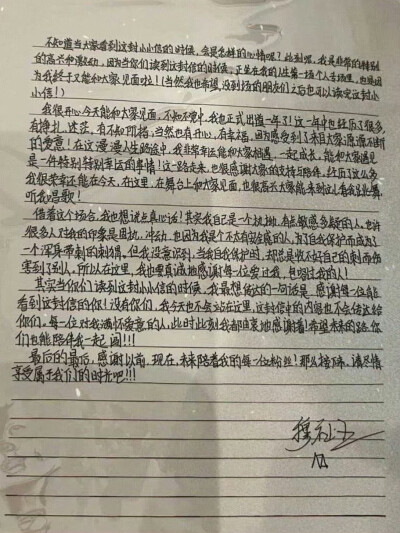 不知道当大家看到这封小小信的时候,会是怎样的心情呢?此刻呢,我是非常的特别
的高兴和激动,因为当你们读到这封信的时候,正坐在我的人生第一场个人专场里,也是因
为我终于又能和大家见面啦!(当然我也希望,没到场的朋友们之后也可以读完这封小
小信!)
我很开心今天能和大家见面,不知不觉中,我也正式出道一年了!这一年中也经历了很多,
有挣扎,迷茫,有不知所措,当然也有开心,有幸福,因为感受到了来自大家源源不断
的爱意!在这漫漫人生路途中,我非常幸运能和大家相遇,一起成长,能和大家遇见
是一件特别特别幸运的事情!这一路走来,也很感谢大家的支持与陪伴,经历了这么多
我很荣幸还能在今天,在这里,在舞台上和大家见面,也很高兴大家能来到这儿看我
听我唱歌!
借着这个场合,我也想说点真心话!其实我自己是一个执拗,有点敏感多疑的人。也许
很多人对我的印象是固执,冲动,也因为我是个不太有安全感的人,为了自我保护而成为了
一个浑身带刺的刺猬。但我没意识到,当自我保护时,却总是收不好自己的刺而伤
害到了别人,所以在这里,我也要真诚地感谢每一位爱过我,包容过我的人!
其实当你们读到这封小小信的时候,我最想传达的一句话是:感谢每一位有能
看到这封信的你!没有你们,我今天也不会站在这里,这封信中的内容也不会传达给
你们。每一位对我满怀爱意的人,此时此刻我都由衷地感谢着!希望未来的路,你
们也能陪伴我一起闯!!!
最后的最后,感谢以前,现在,未来陪着我的每一位粉丝!那么接下来,请尽情
享受属于我们的时光吧!!!
穆祉丞